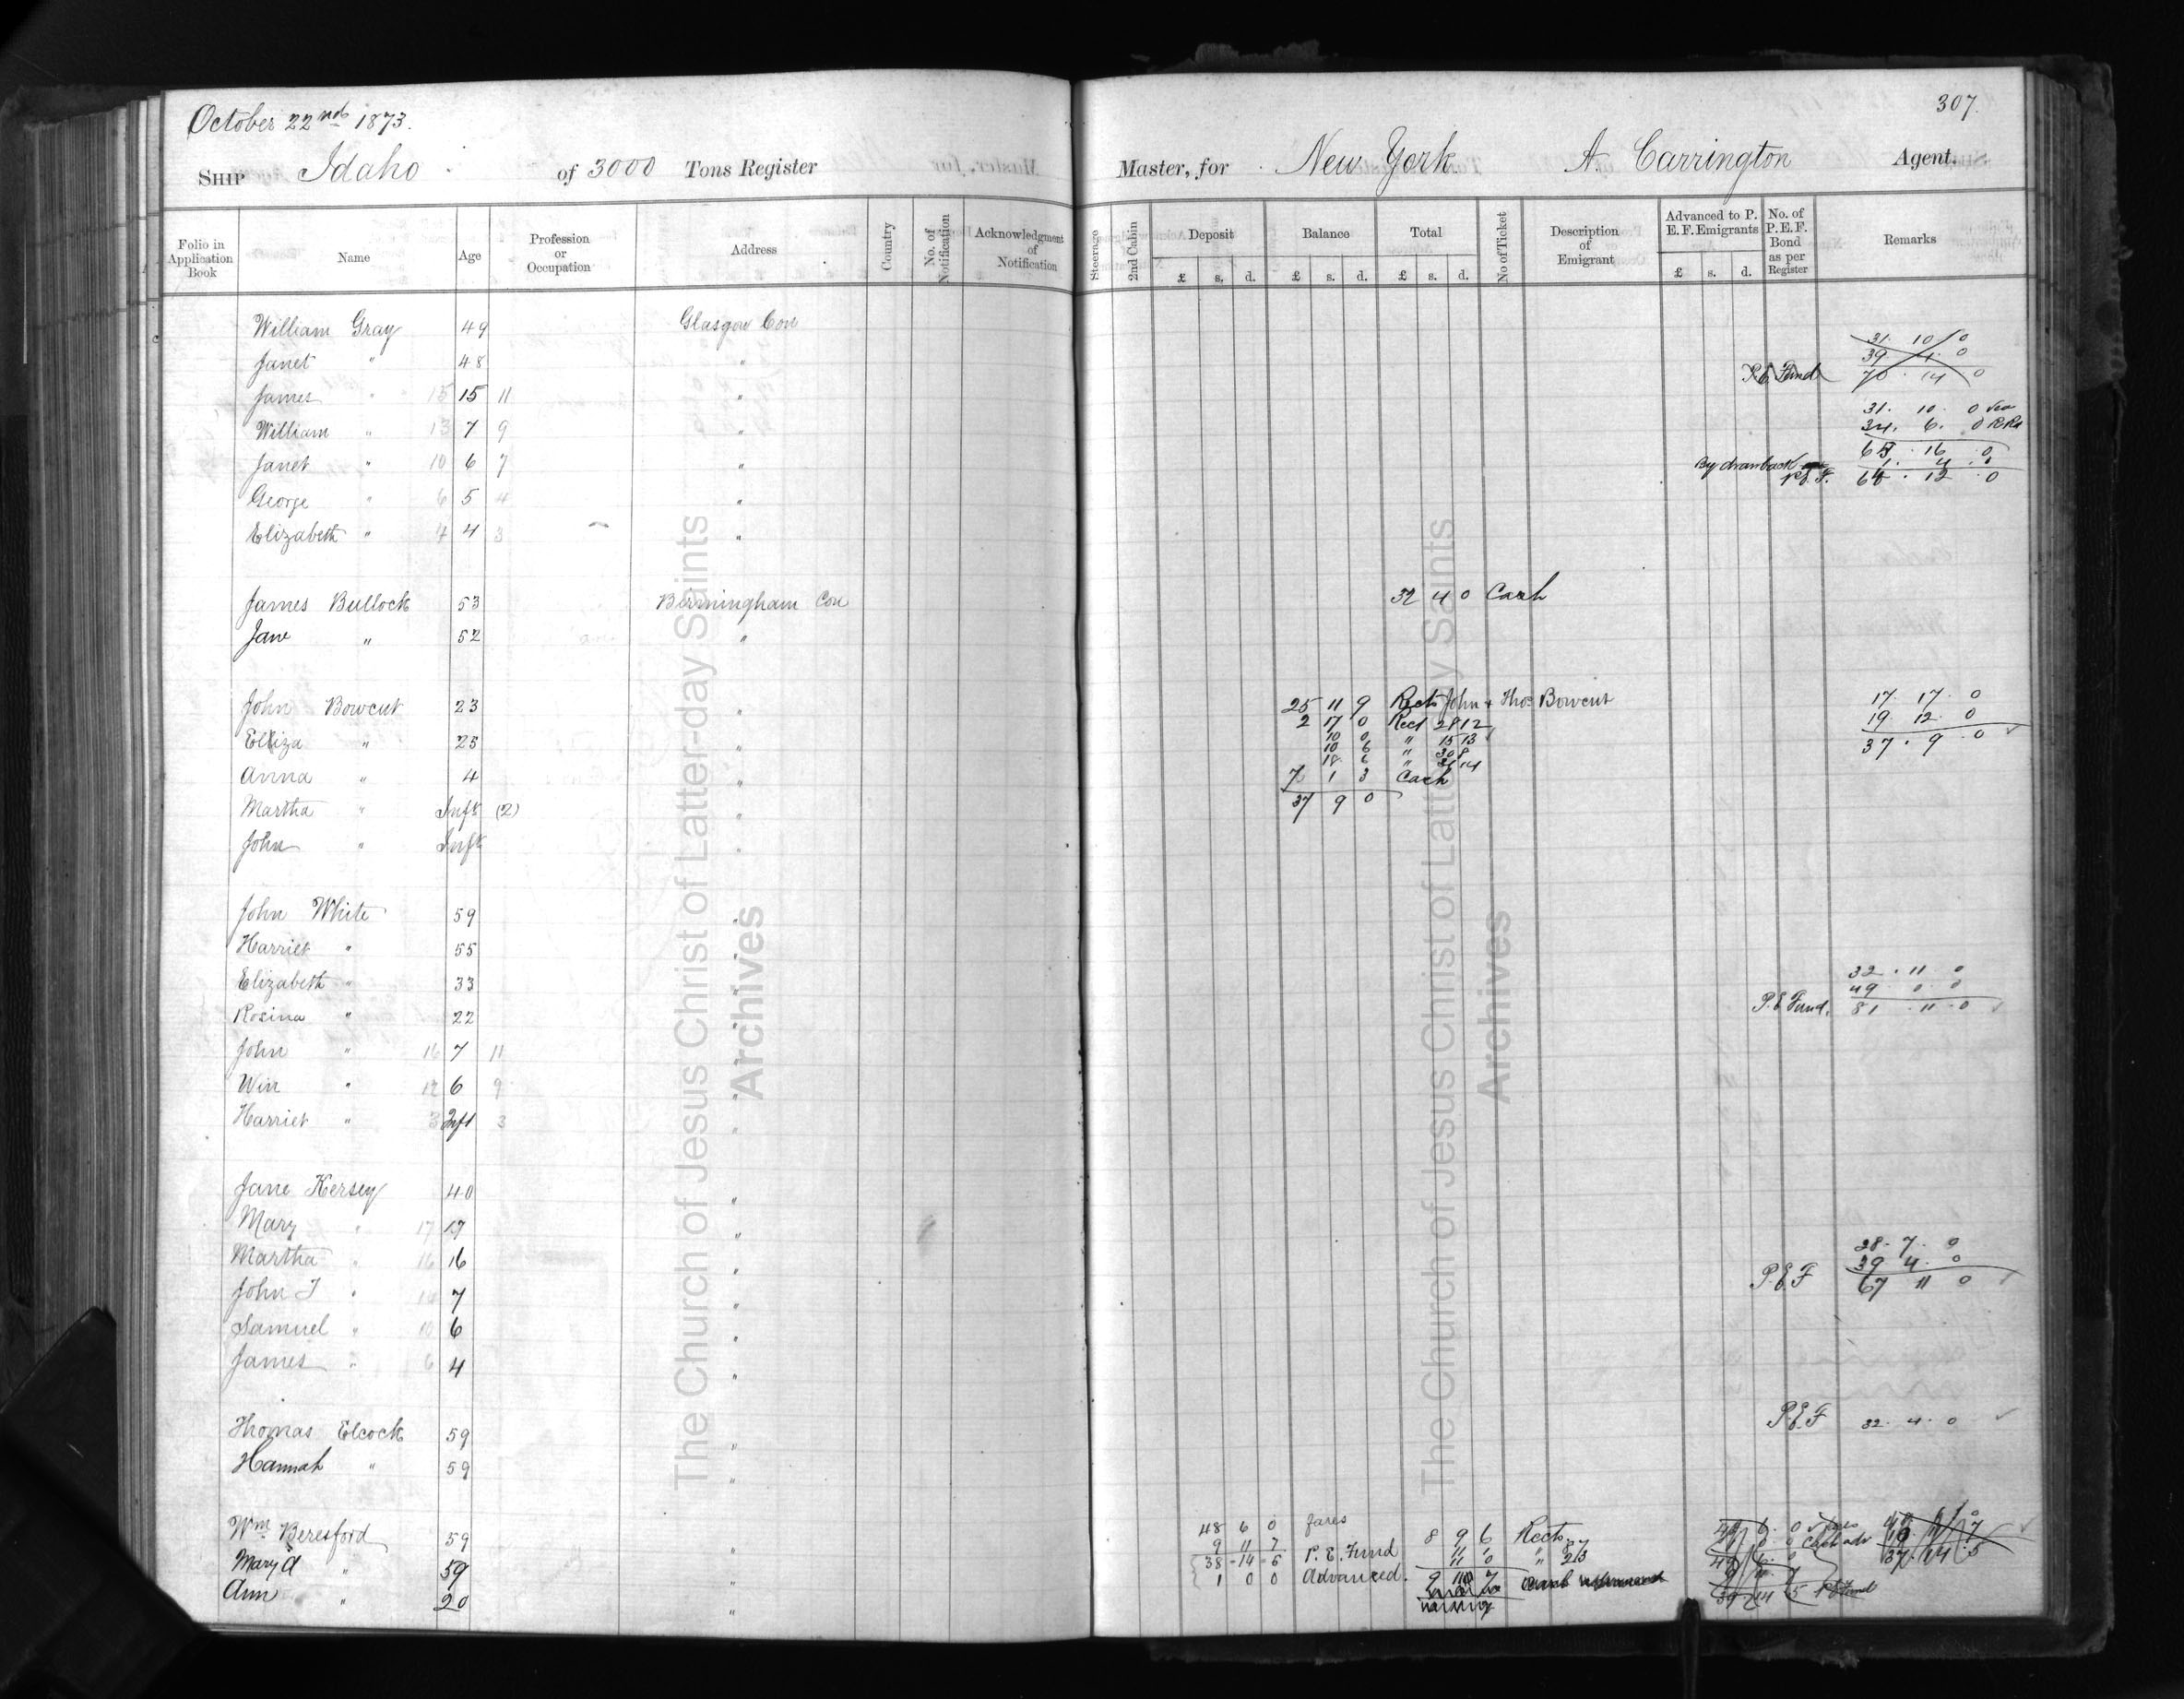 307.
October 22nd 1873.
Ship Idaho of 3000 Tons Register Master, for New York A. Carrington Agent.
Folio in Application Book Name Age Profession or Occupation Address Country No. of Notification Acknowledgment of Notification Steerage 2nd Cabin Deposit Balance Total No of Ticket Description of Emigrant Advanced to P. E. F. Emigrants No. of P.E.F. Bond as per Register Remarks
£ s. d. £ s. d. £ s. d. £ s. d.
William Gray 49 Glasgow Con
31. 10 0
Janet " 48 " 39 4 0
P. E. Fund 70 . 14 0
James " 15 15 11 "
31. 10. 0 Sea
William " 13 7 9 " 34. 6. 0 R Rd
65 . 16 . 0
Janet " 10 6 7 " By drawback 1 . 4 . 0
P. E. F. 64 . 12 . 0
George " 6 5 4 "
Elizabeth " 4 4 3 "
James Bullock 53 Birmingham Con 32 4 0 Cash
Jane " 52 "
John Bowcut 23 " 25 11 9 Rects John + Thos Bowcut 17. 17. 0
2 17 0 Rect 2812 19. 12. 0
Eliza " 25 " 10 0 " 1513 37 . 9 . 0
10 6 " 308
18 6 "
Anna " 4 " 7 1 3 Cash
Martha " Inft (2) " 37 9 0
John " Inft "
John White 59 "
Harriet " 55 "
Elizabeth " 33 " 32 . 11 0
49 0 0
Rosina " 22 P. E Fund. 81 . 11 . 0
John " 16 7 11
Wm " 12 6 9
Harriet " 3 Inft 3 "
Jane Kersey 40 "
Mary " 17 17 "
Martha " 16 16 " 28. 7. 0
39 4. 0
John T " 7 " P. E F 67 11 0
Samuel " 10 6 "
James " 6 4 "
Thomas Elcock 59 " P. E F 32. 4. 0
Hannah " 59 "
48 6 0 fares
Wm Beresford 59 " 9 11 7 8 9 6 Rects
38 - 14 - 5 P. E. Fund 11 1 "
Mary A " 59 " 1 0 0 Advanced. 11 0 "
Ann " 20 "
The Church of Jesus Christ of Latter-day Saints
Archives
The Church of Jesus Christ of Latter-day Saints
Archives